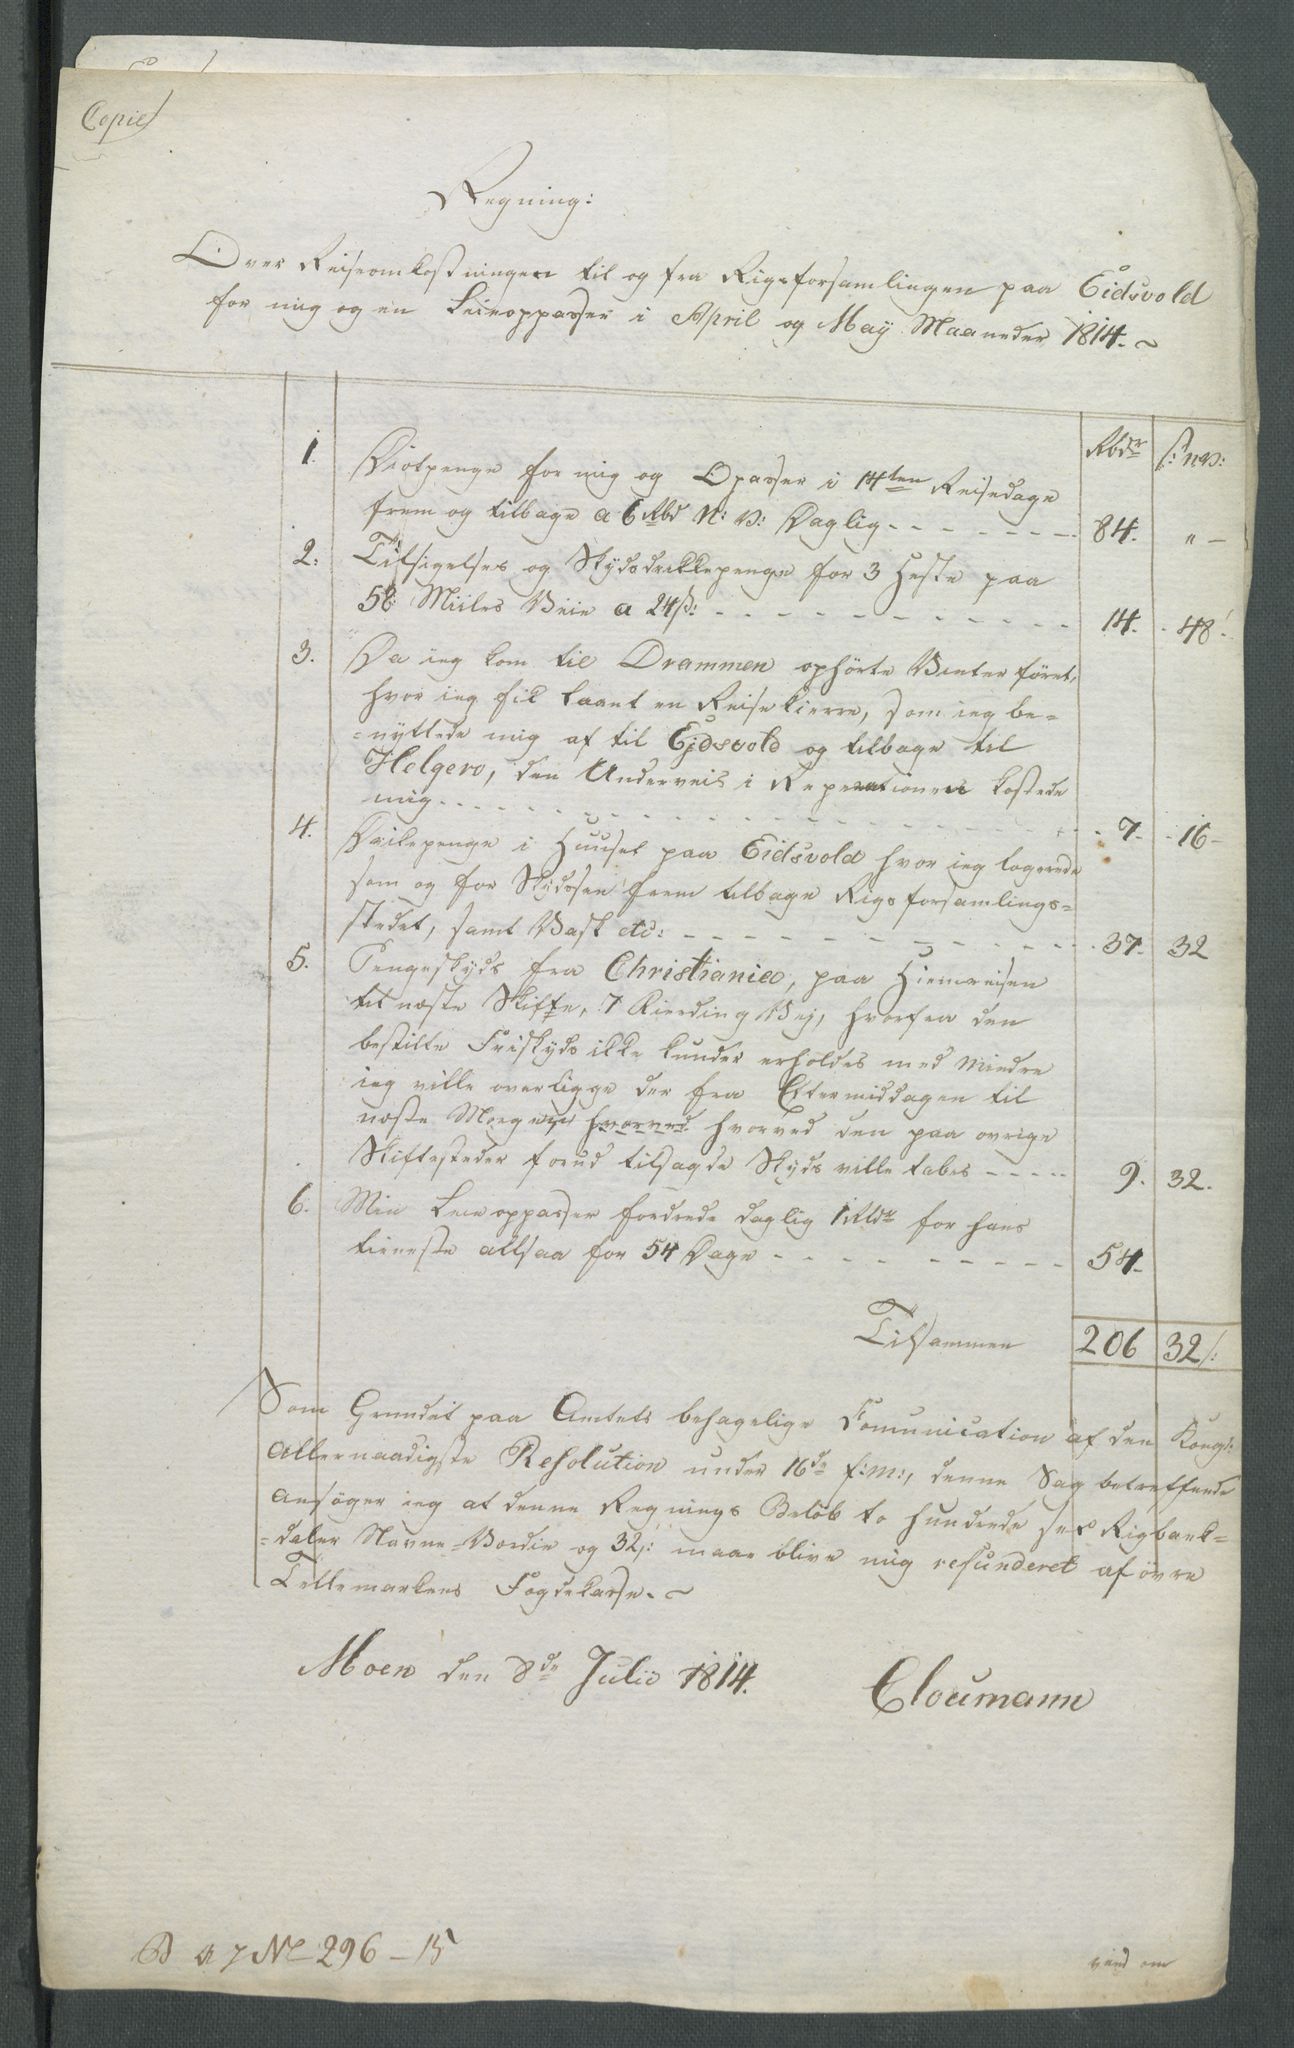 Copie
Regning:
Over Reiseomkostningen til og fra Rigsforsamlingen paa Eidsvold
for mig og en Leieoppasser i April og Maÿ Maaneder 1814.
Rbdr ſ: NV:
1. Diætpenge for mig og Opasser i 14ten Reisedage
frem og tilbage a 6 Rbd N: V: Daglig - - - - - - 84. " -
2. Tilsigelses og Skydsdrikkepenge for 3 Heste paa
58 Miiles Veie a 24ß: - - - - - - - - - - 14. - 48.
3. Da ieg kom til Drammen ophörte Vinterföret,
hvor ieg fik laant en Reisekierre, som ieg be-
=nyttede mig af til Ejdsvold og tilbage til
Helgero, den Underveis i Reperationen kostede
mig - - - - - - - - - - - - - - - - - 7. - 16 -
4. Drikepenge i Huuset paa Eidsvold hvor ieg logerede
som og for Skydsen frem tilbage Rigsforsamlings=
stedet, samt Vask etc: - - - - - - - - - - 37. 32
5. Pengeskyds fra Christiania, paa Hiemreisen
til næste Skifte, 7 Fierding Vej, hvorfra den
bestilte Friskyds ikke kunde erholdes med mindre
ieg ville overligge der fra Eftermiddagen til
næste Morgen hvorved hvorved den paa øvrige
Skiftesteder forud tilsagde Skyds ville tabes - - - - 9. 32.
6. Min Leieoppasser fordrede daglig 1 Rbdr for hans
tieneste altsaa for 54 Dage - - - - - - - - - 54.
Tilsammen 206 32ſ:
Som Grundet paa Amtets behagelige Comunication af den Kongl:
Allernaadigste Resolution under 16de f: m:, denne Sag betreffende
ansøger ieg at denne Regnings Belöb to hundrede sex Rigbank=
=daler Navne=Værdie og 32ſ: maae blive mig refunderet af övre
Tellemarkens Fogdekasse.
Moen den 8de Julii 1814. Cloumann
No 296 - 15
vend om